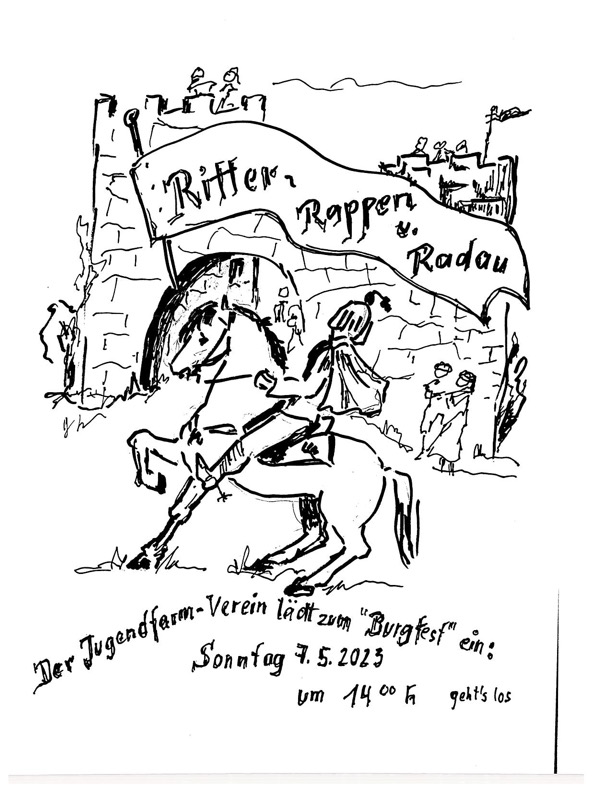 Ritter,
Rappen
u.
Radau
Der Jugendfarm-Verein lädt zum "Burgfest" ein:
Sonntag 7.5.2023
um 14 00 h geht's los